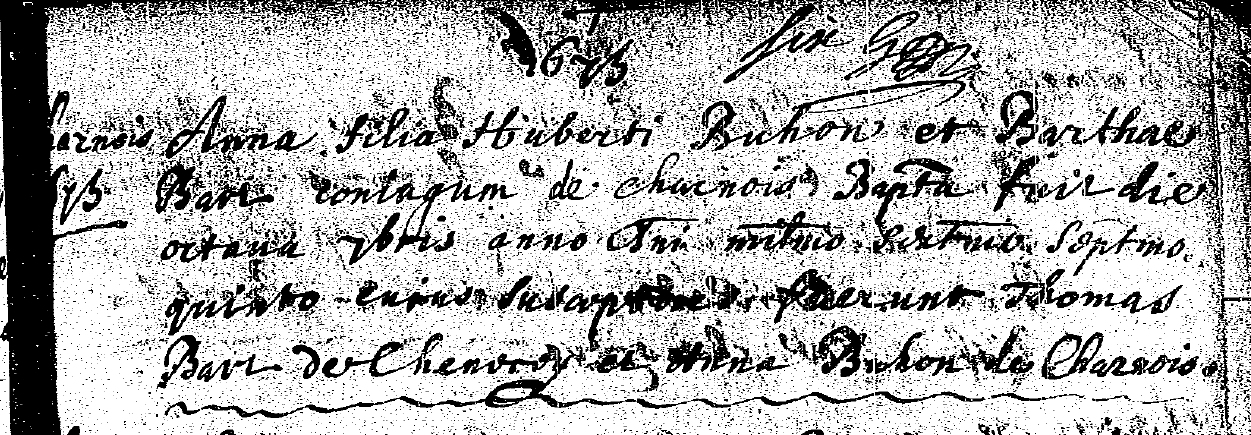 1675
harnois Anna filia Huberti Buhon et Barthae
1675 Bavr coniagum de charnois Bapta fuit die
octava 7bris anno Dni milmo sextmo septmo
quinto cuius susceptores fuerunt Thomas
Bavr de Chenoy et Anna Buhon de Charnois.